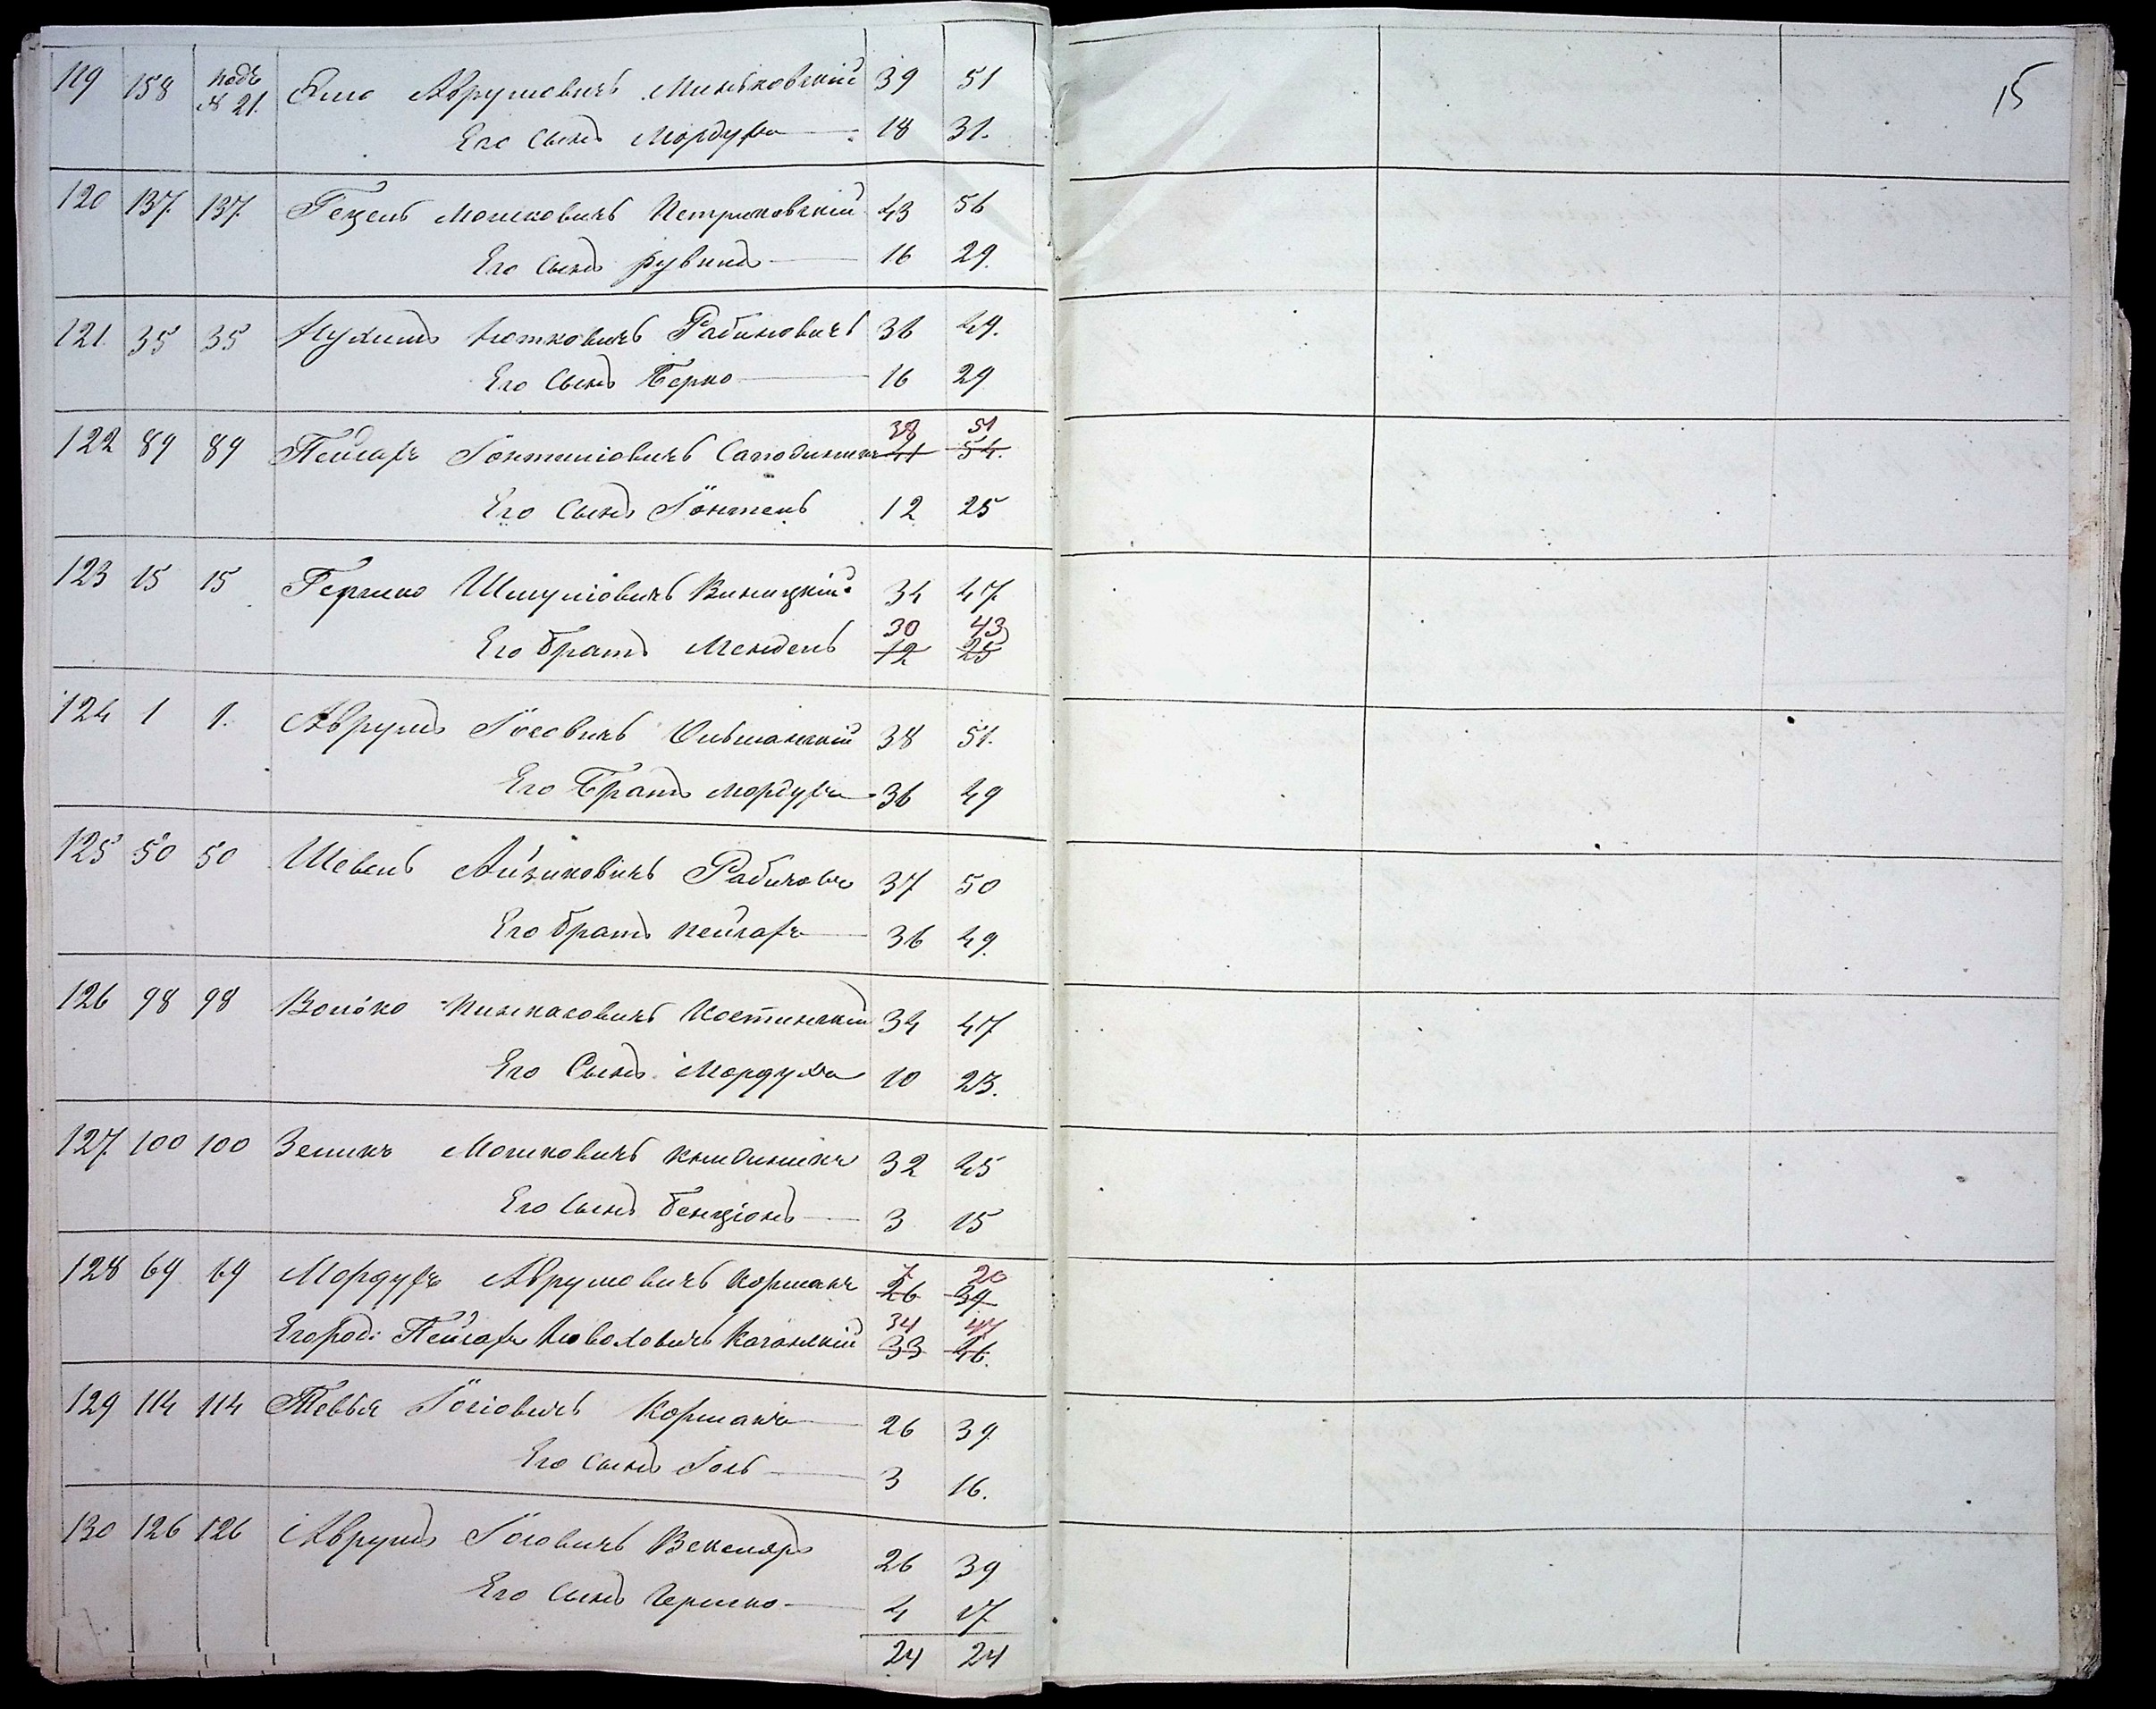 15
119 158 подъ № 21. Эліо Аврумовичъ Миньковскій 39 51
Его сынъ Мордухъ 18 31.
120 137. 137. Гецель Мошковичъ Петриковскій 43 56
Его сынъ Рувинъ 16 29.
121. 35 35 Нухимъ Іотковичъ Рабиновичъ 36 49.
Его сынъ Берко 16 29
38 51
122 89 89 Пейсахъ Гонтиліовичъ 41 54.
Его сынъ Гонтель 12 25
123 15 15 Гершко Шмуліовичъ Виницкій 34 47.
30 43
Его братъ Мендель 12 25
124 1 1. Аврумъ Іосовичъ Ольшанскій 38 51.
Его братъ Мордухъ 36 49
125 50 50 Шевель Айзиковичъ Рабиновъ 37 50
Его братъ Пейсахъ 36 49.
126 98 98 Волько Пинкасовичъ Костинскій 34 47
Его сынъ Мордухъ 10 23.
127. 100 100 Зеликъ Мошковичъ 32 45
Его сынъ Бенціонъ 3 15
7 20
128 69 69 Мордухъ Аврумовичъ Корманъ 26 39
34 47
Его род: Пейсахъ Каганскій 33 46.
129 114 114 Тевья Іосіовичъ Корманъ 26 39
Его сынъ Іось 3 16.
130 126 126 Аврумъ Іосовичъ Векслеръ 26 39
Его сынъ Гершко 4 17.
24 24